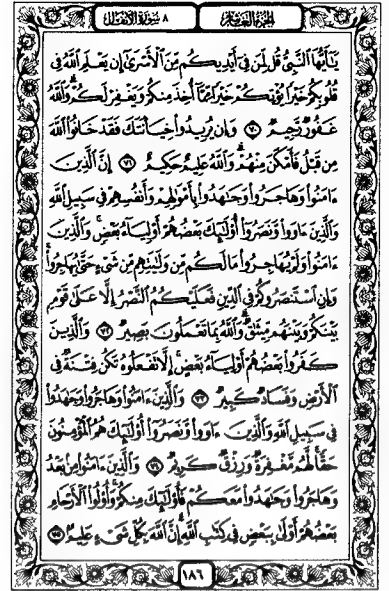 الجزء العاشر
٨ سورة الأنفال
يَٰٓأَيُّهَا ٱلنَّبِىُّ قُل لِّمَن فِىٓ أَيْدِيكُم مِّنَ ٱلْأَسْرَىٰٓ إِن يَعْلَمِ ٱللَّهُ فِى
قُلُوبِكُمْ خَيْرًا يُؤْتِكُمْ خَيْرًا مِّمَّآ أُخِذَ مِنكُمْ وَيَغْفِرْ لَكُمْ ۗ وَٱللَّهُ
غَفُورٌ رَّحِيمٌ ٧٠ وَإِن يُرِيدُوا۟ خِيَانَتَكَ فَقَدْ خَانُوا۟ ٱللَّهَ
مِن قَبْلُ فَأَمْكَنَ مِنْهُمْ ۗ وَٱللَّهُ عَلِيمٌ حَكِيمٌ ٧١ إِنَّ ٱلَّذِينَ
ءَامَنُوا۟ وَهَاجَرُوا۟ وَجَٰهَدُوا۟ بِأَمْوَٰلِهِمْ وَأَنفُسِهِمْ فِى سَبِيلِ ٱللَّهِ
وَٱلَّذِينَ ءَاوَوا۟ وَّنَصَرُوٓا۟ أُو۟لَٰٓئِكَ بَعْضُهُمْ أَوْلِيَآءُ بَعْضٍ ۚ وَٱلَّذِينَ
ءَامَنُوا۟ وَلَمْ يُهَاجِرُوا۟ مَا لَكُم مِّن وَلَٰيَتِهِم مِّن شَىْءٍ حَتَّىٰ يُهَاجِرُوا۟ ۚ
وَإِنِ ٱسْتَنصَرُوكُمْ فِى ٱلدِّينِ فَعَلَيْكُمُ ٱلنَّصْرُ إِلَّا عَلَىٰ قَوْمٍۭ
بَيْنَكُمْ وَبَيْنَهُم مِّيثَٰقٌ ۗ وَٱللَّهُ بِمَا تَعْمَلُونَ بَصِيرٌ ٧٢ وَٱلَّذِينَ
كَفَرُوا۟ بَعْضُهُمْ أَوْلِيَآءُ بَعْضٍ ۚ إِلَّا تَفْعَلُوهُ تَكُن فِتْنَةٌ فِى
ٱلْأَرْضِ وَفَسَادٌ كَبِيرٌ ٧٣ وَٱلَّذِينَ ءَامَنُوا۟ وَهَاجَرُوا۟ وَجَٰهَدُوا۟
فِى سَبِيلِ ٱللَّهِ وَٱلَّذِينَ ءَاوَوا۟ وَّنَصَرُوٓا۟ أُو۟لَٰٓئِكَ هُمُ ٱلْمُؤْمِنُونَ
حَقًّا ۚ لَّهُم مَّغْفِرَةٌ وَرِزْقٌ كَرِيمٌ ٧٤ وَٱلَّذِينَ ءَامَنُوا۟ مِنۢ بَعْدُ
وَهَاجَرُوا۟ وَجَٰهَدُوا۟ مَعَكُمْ فَأُو۟لَٰٓئِكَ مِنكُمْ ۚ وَأُو۟لُوا۟ ٱلْأَرْحَامِ
بَعْضُهُمْ أَوْلَىٰ بِبَعْضٍ فِى كِتَٰبِ ٱللَّهِ ۗ إِنَّ ٱللَّهَ بِكُلِّ شَىْءٍ عَلِيمٌۢ ٧٥
١٨٦